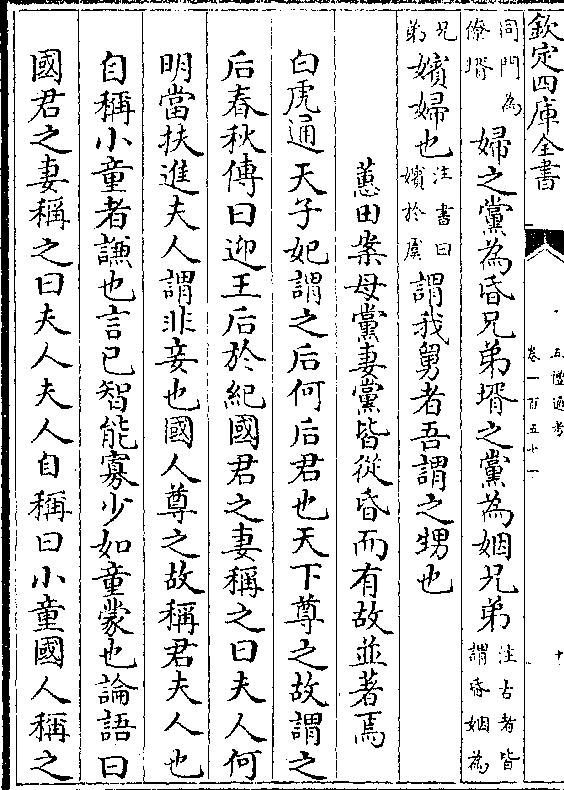 欽定四庫全書
五禮通考
卷一百五十一
十
同門為僚壻
婦之黨為昏兄弟壻之黨為姻兄弟注古者皆謂昏姻為
兄弟嬪婦也注書曰嬪於虞謂我舅者吾謂之甥也
蕙田案母黨妻黨皆從昏而有故並著焉
白虎通天子妃謂之后何后君也天下尊之故謂之
后春秋傳曰迎王后於紀國君之妻稱之曰夫人何
明當扶進夫人謂非妾也國人尊之故稱君夫人也
自稱小童者謙也言已智能寡少如童蒙也論語曰
國君之妻稱之曰夫人夫人自稱曰小童國人稱之